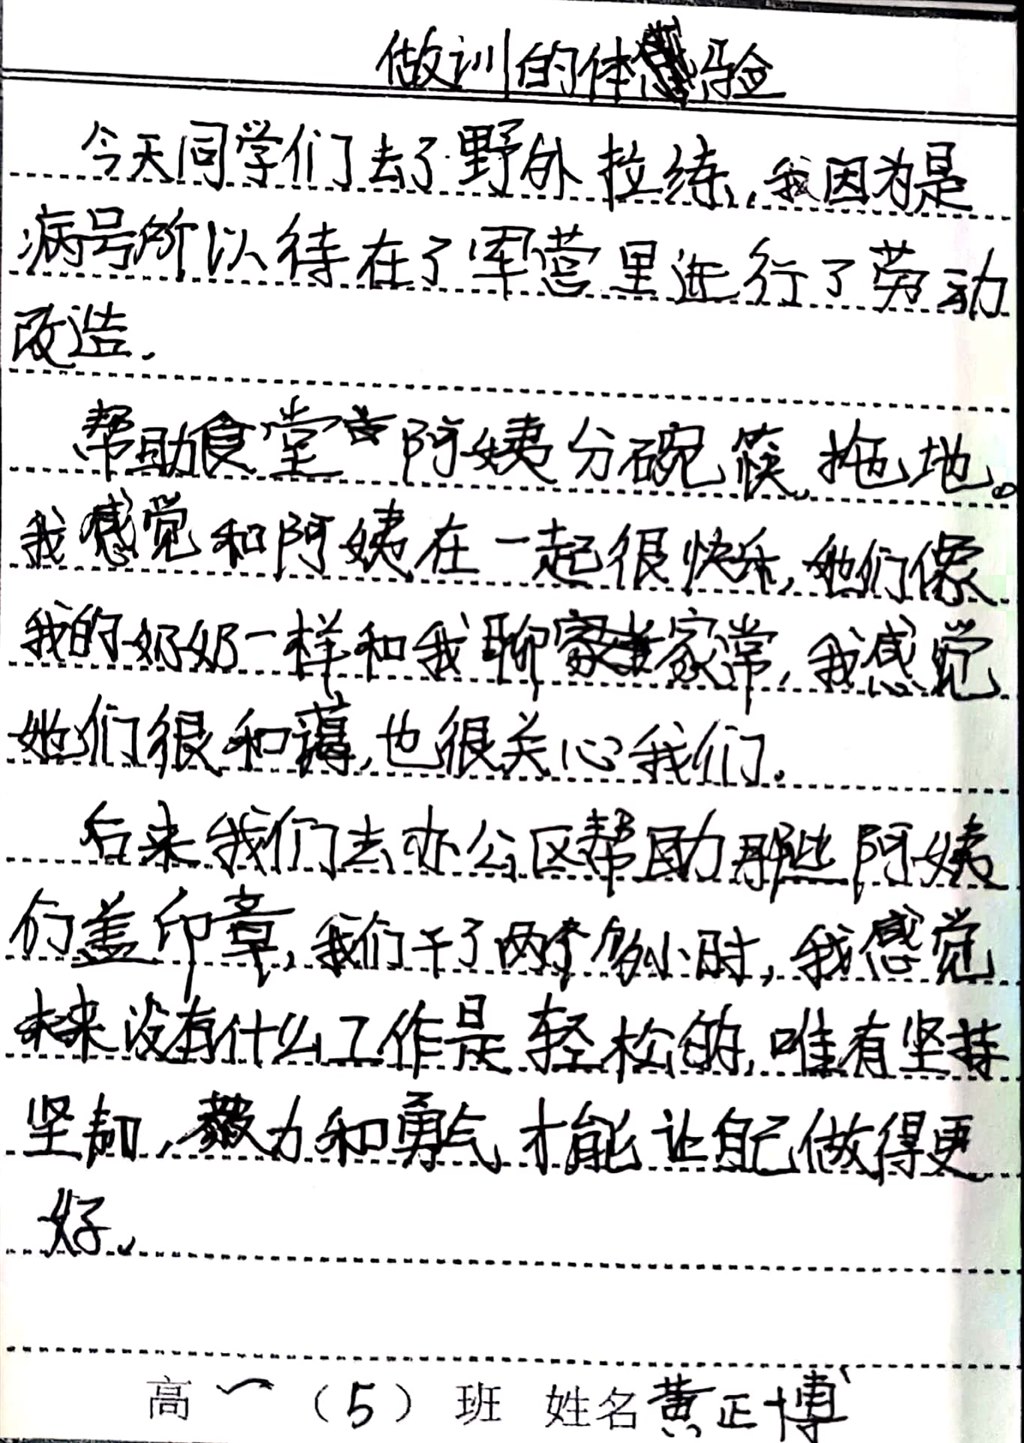 做训的体验
今天同学们去了野外拉练,我因为是
病号所以待在了军营里进行了劳动
改造.
帮助食堂阿姨分碗筷,拖地。
我感觉和阿姨在一起很快乐,她们像
我的奶奶一样和我聊家常,我感觉
她们很和蔼,也很关心我们.
后来我们去办公区帮助那些阿姨
们盖印章,我们干了两个多小时,我感觉
未来没有什么工作是轻松的,唯有坚持
坚韧,毅力和勇气,才能让自己做得更
好.
高一(5)班 姓名黄正博